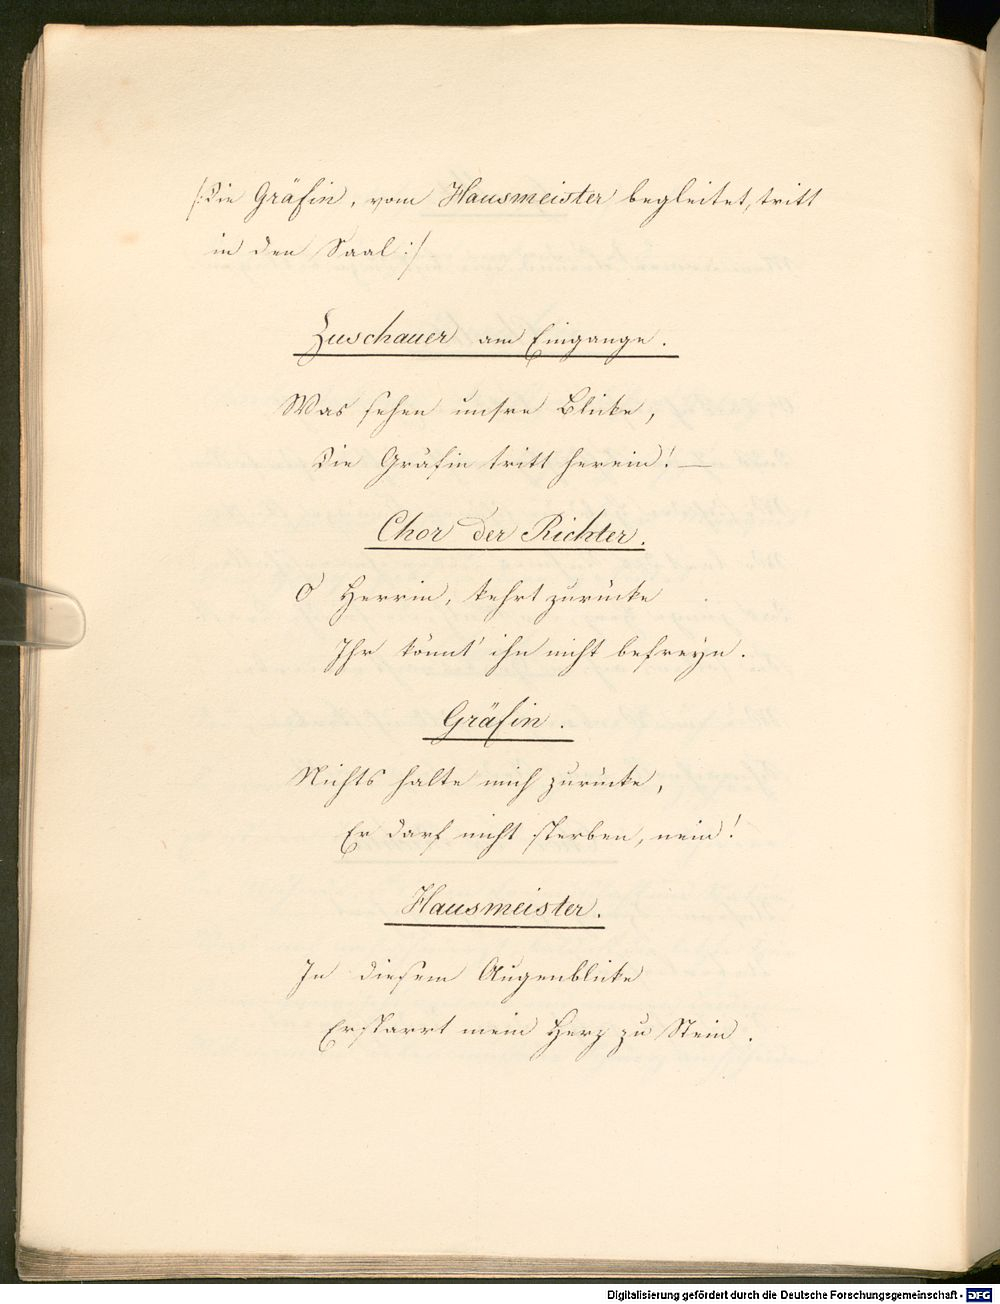 /:Die Gräfin, vom Hausmeister begleitet, tritt
in den Saal:/
Zuschauer am Eingange.
Was sehen unsre Blicke,
Die Gräfin tritt herein! —
Chor der Richter.
O Herrin, kehrt zurücke
Ihr könnt' ihn nicht befreyn.
Gräfin.
Nichts halte mich zurücke,
Er darf nicht sterben, nein!
Hausmeister.
In diesem Augenblicke
Erstarrt mein Herz zu Stein.
Digitalisierung gefördert durch die Deutsche Forschungsgemeinschaft - DFG